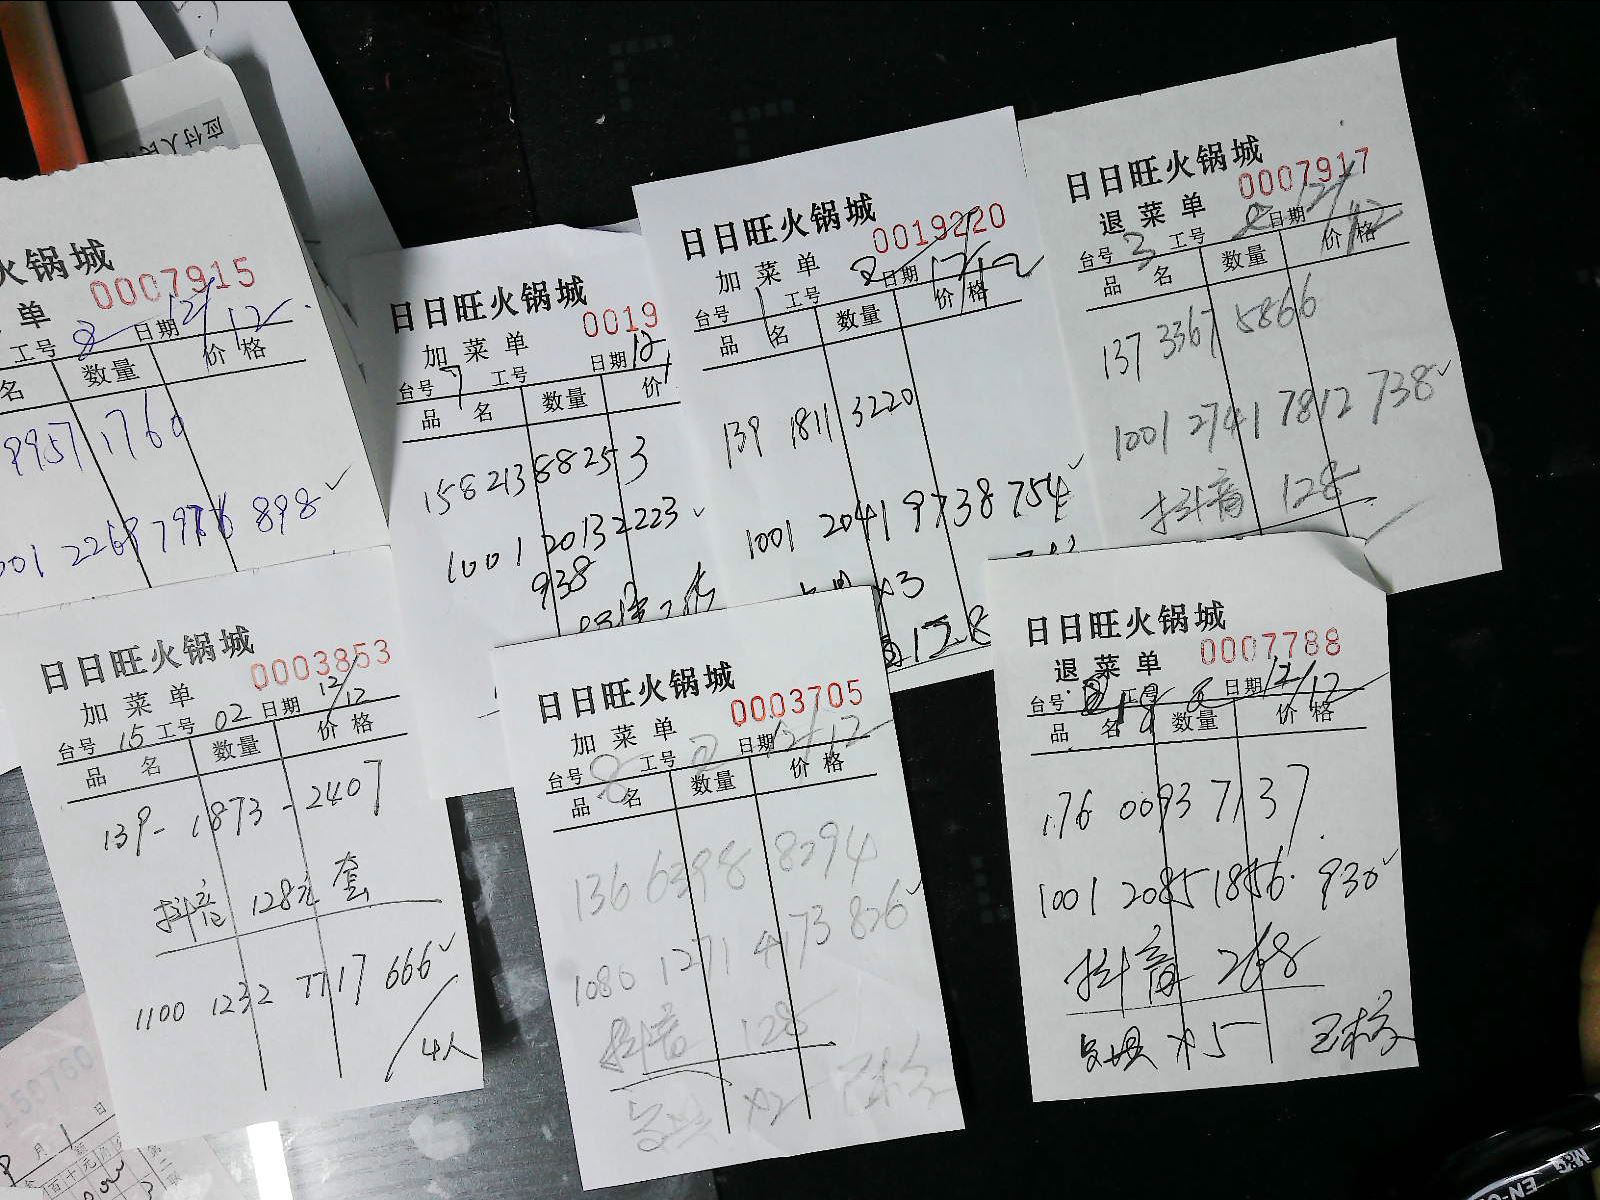 应付人民
火锅城
单 0007915
工号 2 日期 12/12
名 数量 价格
9957 1760
001 2269 7976 898
日日旺火锅城
加菜单 0019
台号 7 工号 日期 12
品名 数量 价
158 213 88253
1001 2013 2223
938
日日旺火锅城
加菜单 0019220
台号 1 工号 2 日期 12/12
品名 数量 价格
139 1811 3220
1001 2041 9738 754
x3
128
日日旺火锅城
退菜单 0007917
台号 3 工号 2 日期 12/12
品名 数量 价格
137 3367 5866
1001 2741 7812 738
抖音 128
日日旺火锅城
加菜单 0003853
台号 15 工号 02 日期 12/12
品名 数量 价格
139-1873-2407
抖音 128元 套
1100 1232 7717 666
4人
日日旺火锅城
加菜单 0003705
台号 8 工号 2 日期 12/12
品名 数量 价格
136 6398 8294
1080 1271 4173 826
抖音 128
x2 已核
日日旺火锅城
退菜单 0007788
台号 18 工号 2 日期 12/12
品名 数量 价格
176 0093 7137
1001 2085 1856 930
抖音 268
x5 已核
月1日
百十元
第二联
M&G